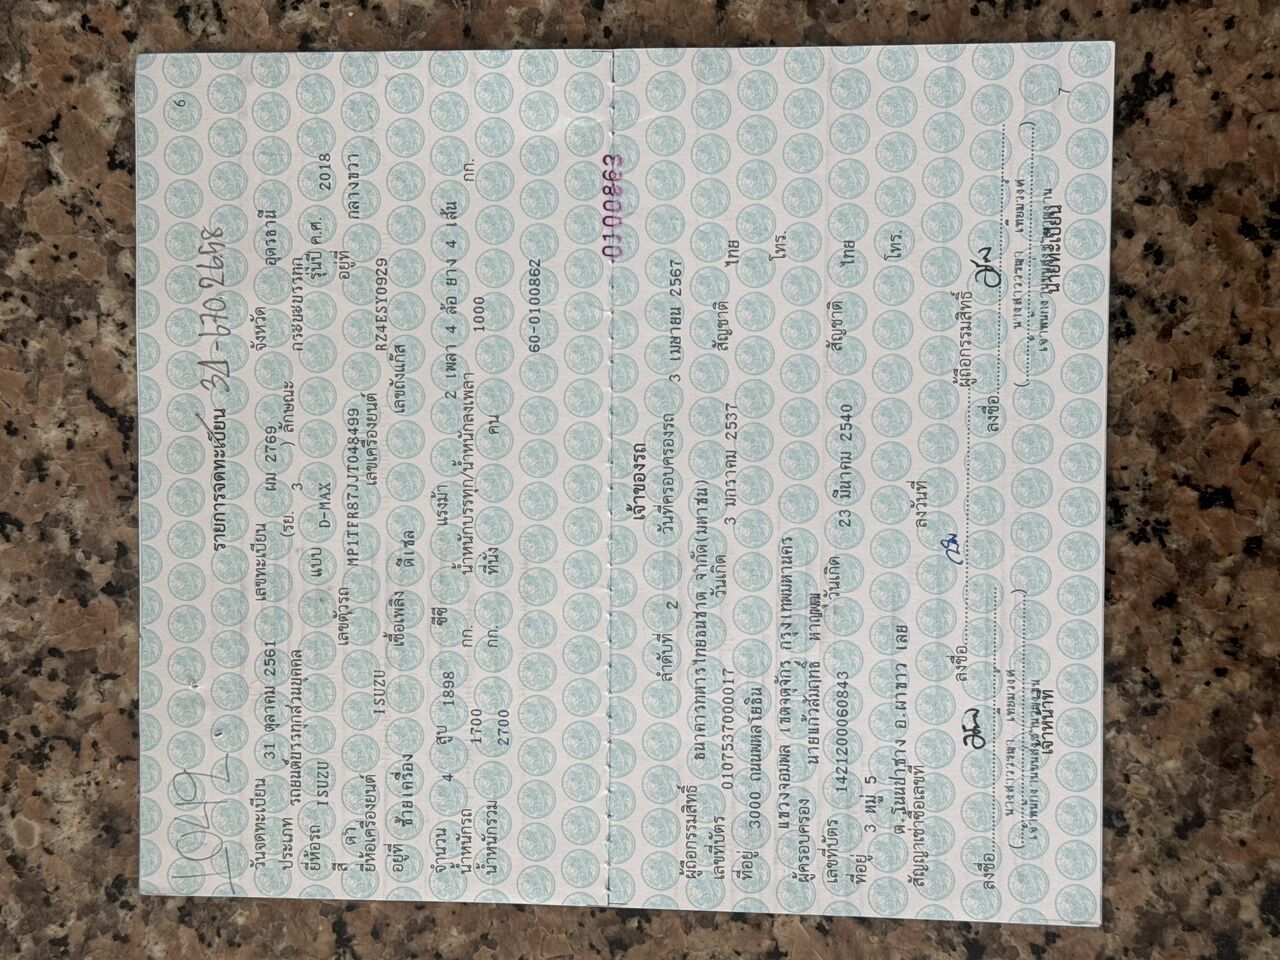 6
L0492
รายการจดทะเบียน
วันจดทะเบียน 31 ตุลาคม 2561 เลขทะเบียน ผม 2769 จังหวัด อุดรธานี
ประเภท รถยนต์บรรทุกส่วนบุคคล (รย. 3 ) ลักษณะ กระบะบรรทุก
ยี่ห้อรถ ISUZU แบบ D-MAX รุ่นปี ค.ศ. 2018
สี ดำ เลขตัวรถ MP1TFR87JJT048499 อยู่ที่ กลางขวา
ยี่ห้อเครื่องยนต์ ISUZU เลขเครื่องยนต์ RZ4ESY0929
อยู่ที่ ซ้ายเครื่อง เชื้อเพลิง ดีเซล เลขถังแก๊ส
จำนวน 4 สูบ 1898 ซีซี แรงม้า 2 เพลา 4 ล้อ ยาง 4 เส้น
น้ำหนักรถ 1700 กก. น้ำหนักบรรทุก/น้ำหนักลงเพลา 1000 กก.
น้ำหนักรวม 2700 กก. ที่นั่ง คน
60-0100862
0100863
เจ้าของรถ
ลำดับที่ 2 วันที่ครอบครองรถ 3 เมษายน 2567
ผู้ถือกรรมสิทธิ์ ธนาคารทหารไทยธนชาต จำกัด(มหาชน)
เลขที่บัตร 0107537000017 วันเกิด 3 มกราคม 2537 สัญชาติ ไทย
ที่อยู่ 3000 ถนนพหลโยธิน โทร.
แขวงจอมพล เขตจตุจักร กรุงเทพมหานคร
ผู้ครอบครอง นายแก้วสัมฤทธิ์
เลขที่บัตร 1421200060843 วันเกิด 23 มีนาคม 2540 สัญชาติ ไทย
ที่อยู่ 3 หมู่ 5 โทร.
ต.โนนป่าซาง อ.ผาขาว เลย
สัญญาเช่าซื้อเลขที่ ลงวันที่
ลงชื่อ ผู้ถือกรรมสิทธิ์
ลงชื่อ ลงชื่อ
เจ้าหน้าที่ นายทะเบียน
7